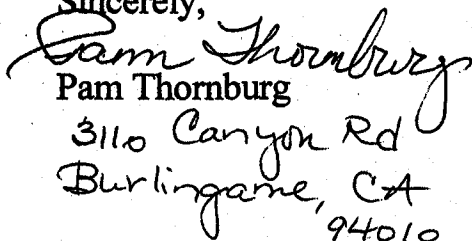 Sincerely,
Pam Thornburg
Pam Thornburg
3110 Canyon Rd
Burlingame, CA
94010